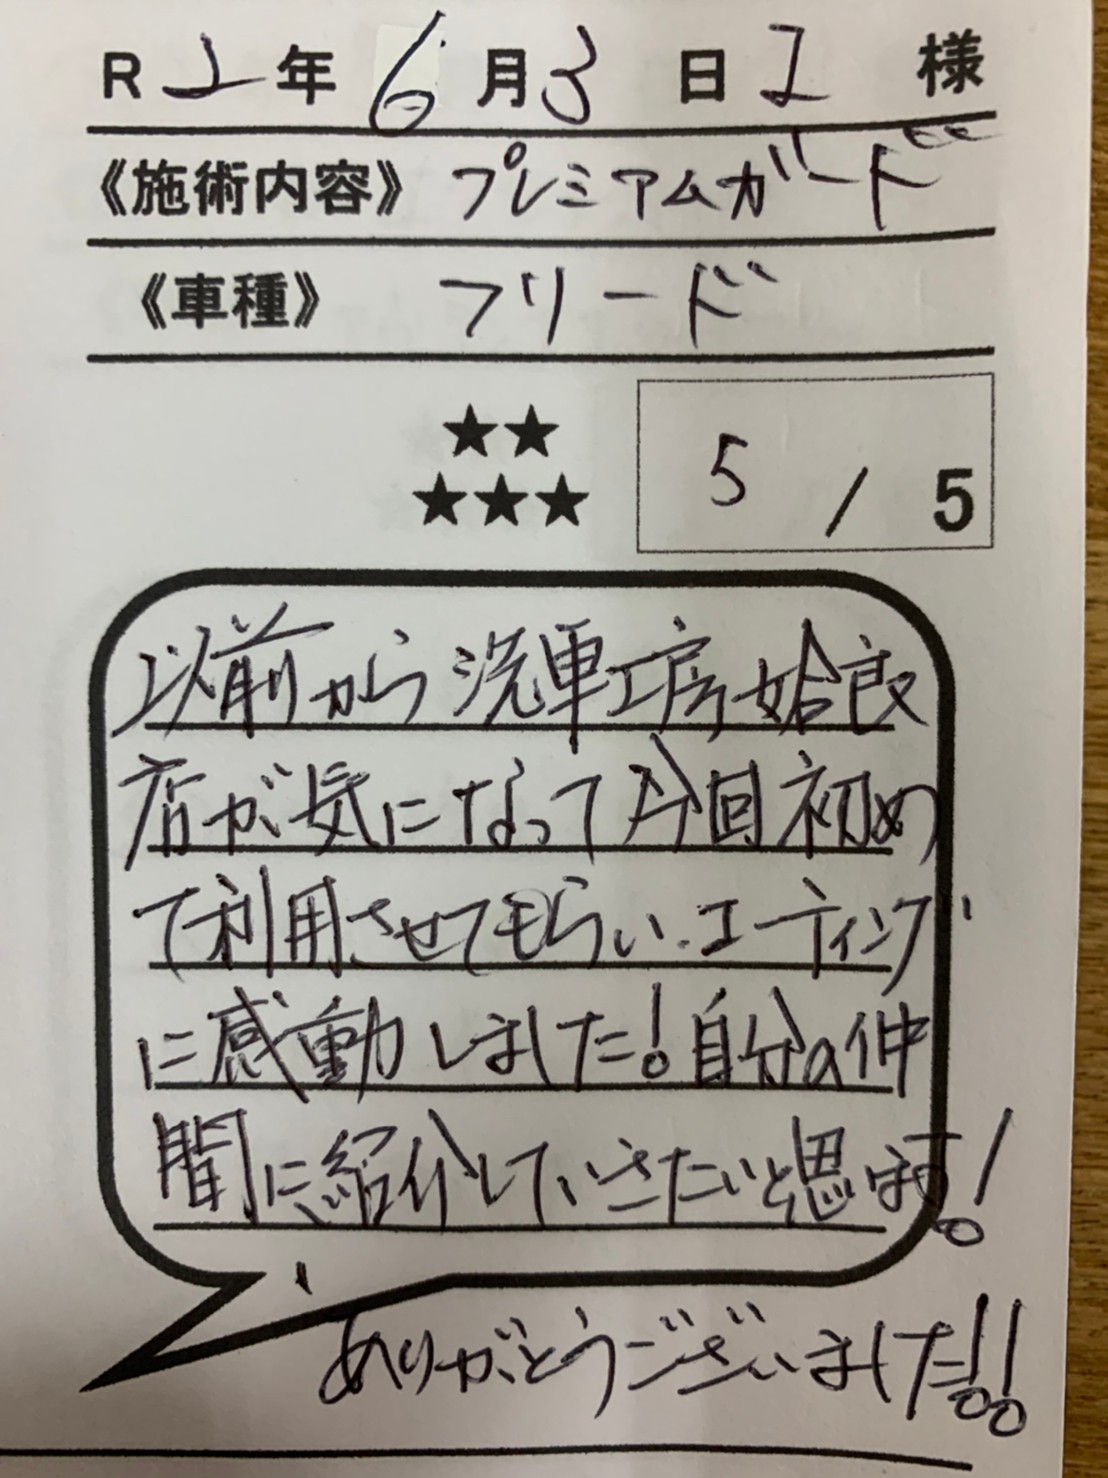 R 2 年 6 月 3 日 I 様
《施術内容》 プレミアムガード
《車種》 フリード
★★
★★★ 5 / 5
以前から洗車工房姶良
店が気になって今回初め
て利用させてもらい、コーティング
に感動しました!自分の仲
間に紹介していきたいと思います!
ありがとうございました!!